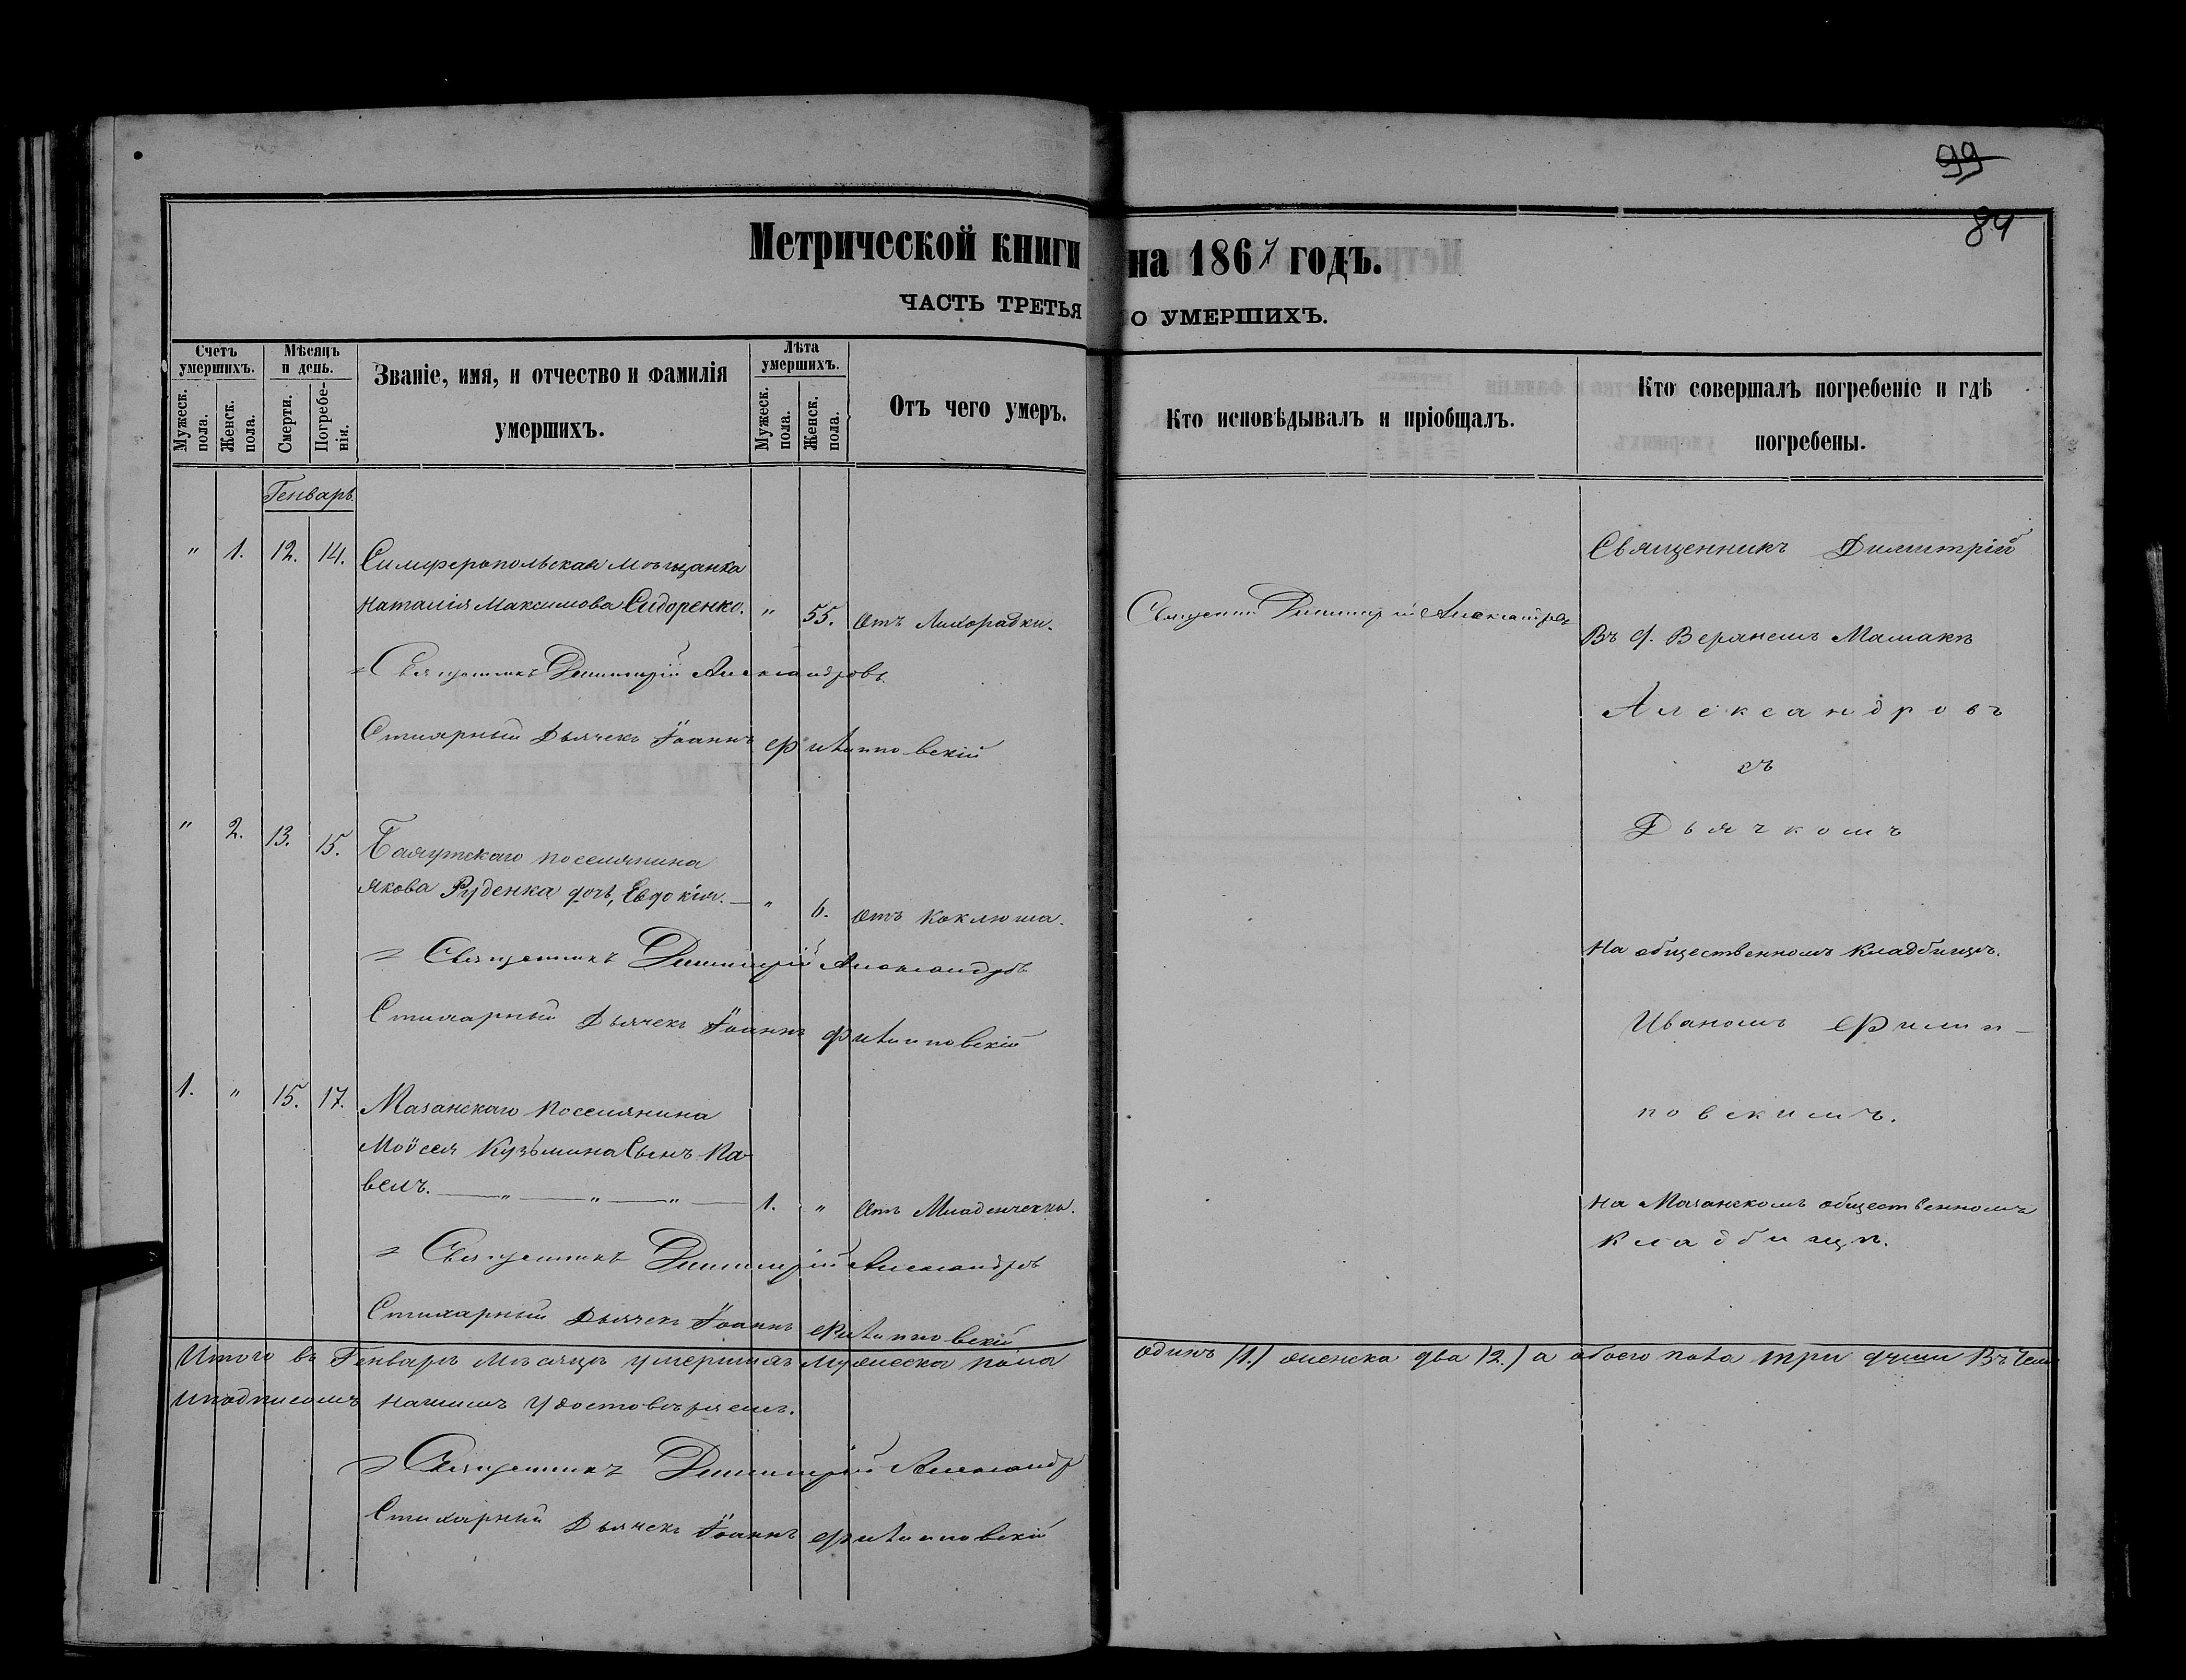 99
84
Метрической книги на 1867 годъ.
ЧАСТЬ ТРЕТЬЯ О УМЕРШИХЪ.
Счетъ умершихъ.
Мужеск. пола.
Женск. пола.
Мѣсяцъ и день.
Смерти.
Погребенія.
Званіе, имя, и отчество и фамилія
умершихъ.
Лѣта умершихъ.
Мужеск. пола.
Женск. пола.
Отъ чего умеръ.
Кто исповѣдывалъ и пріобщалъ.
Кто совершалъ погребеніе и гдѣ
погребены.
Генварь.
" 1. 12. 14. Симферопольская мѣщанка
Наталія Максимова Сидоренко. " 55. Отъ Лихорадки.
Священникъ Димитрій Александровъ
Стихарный Дьячекъ Іоаннъ Филипповскій
Священ Димитрій Александровъ
Священникъ Димитрій
Въ д. Верхнемъ Мамакъ
Александровъ
съ
Дьячкомъ
" 2. 13. 15. поселянина
Якова Руденка дочь, Евдокія. " 6. Отъ Коклюша.
Священникъ Димитрій Александровъ
Стихарный Дьячекъ Іоаннъ Филипповскій
На общественномъ Кладбищѣ.
Иваномъ Филип-
повскимъ.
1. " 15. 17. Мазанскаго поселянина
Моѵсея Кузьмина Сынъ Па-
велъ. " " " 1. " Отъ Младенческ.
Священникъ Димитрій Александровъ
Стихарный Дьячекъ Іоаннъ Филипповскій
На Мазанскомъ общественномъ
Кладбищѣ.
Итого въ Генварѣ Мѣсяцѣ умершихъ Мужеска пола одинъ /1./ женска два /2./ а обоего пола три души Въ чемъ
и подписомъ нашимъ удостовѣряемъ.
Священникъ Димитрій Александр
Стихарный Дьячекъ Іоаннъ Филипповскій